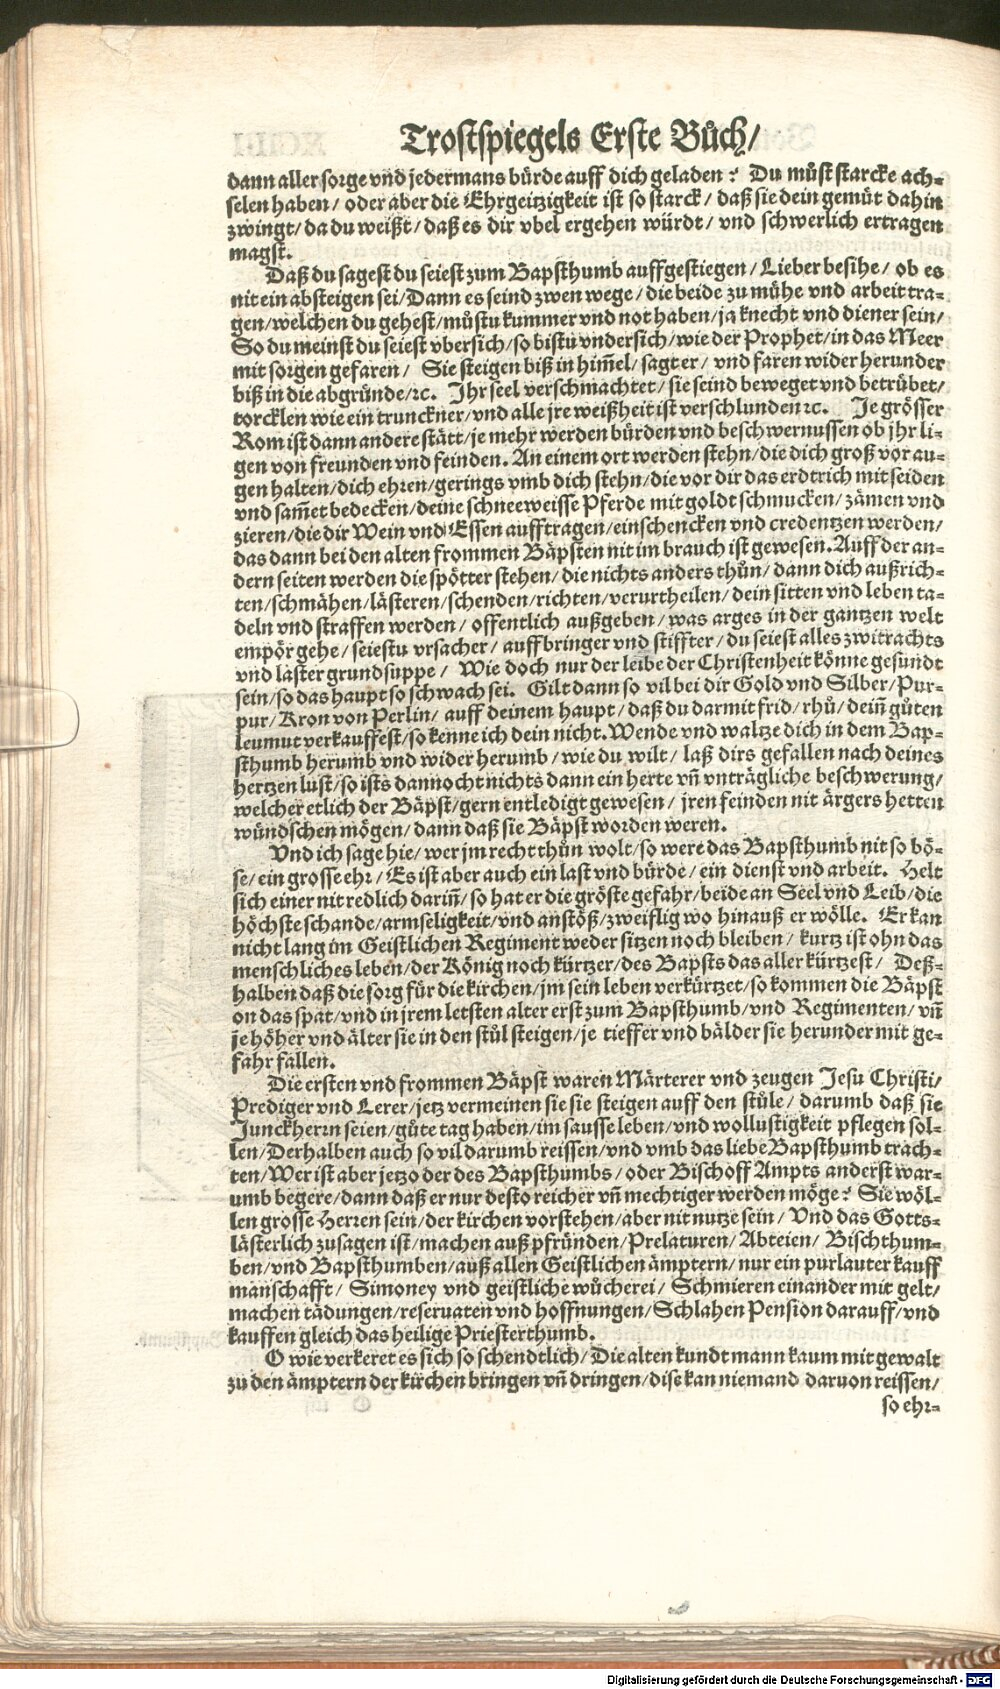 Trostspiegels Erste Bůch/
dann aller sorge vnd jedermans bürde auff dich geladen? Du můst starcke ach⸗
selen haben/ oder aber die Ehrgeitzigkeit ist so starck/ daß sie dein gemüt dahin
zwingt/ da du weißt/ daß es dir vbel ergehen würdt/ vnd schwerlich ertragen
magst.
Daß du sagest du seiest zum Bapsthumb auffgestiegen/ Lieber besihe/ ob es
nit ein absteigen sei/ Dann es seind zwen wege/ die beide zu mühe vnd arbeit tra⸗
gen/ welchen du gehest/ můstu kummer vnd not haben/ ja knecht vnd diener sein/
So du meinst du seiest vbersich/ so bistu vndersich/ wie der Prophet/ in das Meer
mit sorgen gefaren/ Sie steigen biß in him̃el/ sagt er/ vnd faren wider herunder
biß in die abgründe/ ꝛc. Ihr seel verschmachtet/ sie seind beweget vnd betrübet/
torcklen wie ein trunckner/ vnd alle jre weißheit ist verschlunden ꝛc. Je grösser
Rom ist dann andere stätt/ je mehr werden bürden vnd beschwernussen ob jhr li⸗
gen von freunden vnd feinden. An einem ort werden stehn/ die dich groß vor au⸗
gen halten/ dich ehren/ gerings vmb dich stehn/ die vor dir das erdtrich mit seiden
vnd sam̃et bedecken/ deine schneeweisse Pferde mit goldt schmucken/ zämen vnd
zieren/ die dir Wein vnd Essen aufftragen/ einschencken vnd credentzen werden/
das dann bei den alten frommen Bäpsten nit im brauch ist gewesen. Auff der an⸗
dern seiten werden die spötter stehen/ die nichts anders thůn/ dann dich außrich⸗
ten/ schmähen/ lästeren/ schenden/ richten/ verurtheilen/ dein sitten vnd leben ta⸗
deln vnd straffen werden/ offentlich außgeben/ was arges in der gantzen welt
empör gehe/ seiestu vrsacher/ auffbringer vnd stiffter/ du seiest alles zwitrachts
vnd laster grundsuppe/ Wie doch nur der leibe der Christenheit könne gesundt
sein/ so das haupt so schwach sei. Gilt dann so vil bei dir Gold vnd Silber/ Pur⸗
pur/ Kron von Perlin/ auff deinem haupt/ daß du darmit frid/ rhů/ dein̄ gůten
leumut verkauffest/ so kenne ich dein nicht. Wende vnd waltze dich in dem Bap⸗
sthumb herumb vnd wider herumb/ wie du wilt/ laß dirs gefallen nach deines
hertzen lust/ so ists dannocht nichts dann ein herte vn̄ vnträgliche beschwerung/
welcher etlich der Bäpst/ gern entledigt gewesen/ jren feinden nit ärgers hetten
wündschen mögen/ dann daß sie Bäpst worden weren.
Vnd ich sage hie/ wer jm recht thůn wolt/ so were das Bapsthumb nit so bö⸗
se/ ein grosse ehr/ Es ist aber auch ein last vnd bürde/ ein dienst vnd arbeit. Helt
sich einer nit redlich darin̄/ so hat er die gröste gefahr/ beide an Seel vnd Leib/ die
höchste schande/ armseligkeit/ vnd anstöß/ zweiflig wo hinauß er wölle. Er kan
nicht lang im Geistlichen Regiment weder sitzen noch bleiben/ kurtz ist ohn das
menschliches leben/ der König noch kürtzer/ des Bapsts das aller kürtzest/ Deß⸗
halben daß die sorg für die kirchen/ jm sein leben verkürtzet/ so kommen die Bäpst
on das spat/ vnd in jrem letsten alter erst zum Bapsthumb/ vnd Regimenten/ vn̄
je höher vnd älter sie in den stůl steigen/ je tieffer vnd bälder sie herunder mit ge⸗
fahr fallen.
Die ersten vnd frommen Bäpst waren Märterer vnd zeugen Jesu Christi/
Prediger vnd Lerer/ jetz vermeinen sie sie steigen auff den stůle/ darumb daß sie
Junckherrn seien/ gůte tag haben/ im sausse leben/ vnd wollustigkeit pflegen sol⸗
len/ Derhalben auch so vil darumb reissen/ vnd vmb das liebe Bapsthumb trach⸗
ten/ Wer ist aber jetzo der des Bapsthumbs/ oder Bischoff Ampts anderst war⸗
umb begere/ dann daß er nur desto reicher vn̄ mechtiger werden möge? Sie wöl⸗
len grosse Herren sein/ der kirchen vorstehen/ aber nit nutze sein/ Vnd das Gotts⸗
lästerlich zusagen ist/ machen auß pfründen/ Prelaturen/ Abteien/ Bischthum⸗
ben/ vnd Bapsthumben/ auß allen Geistlichen ämptern/ nur ein purlauter kauff
manschafft/ Simoney vnd geistliche wůcherei/ Schmieren einander mit gelt/
machen tädungen/ reseruaten vnd hoffnungen/ Schlahen Pension darauff/ vnd
kauffen gleich das heilige Priesterthumb.
O wie verkeret es sich so schendtlich/ Die alten kundt mann kaum mit gewalt
zu den ämptern der kirchen bringen vn̄ dringen/ dise kan niemand daruon reissen/
so ehr⸗
Digitalisierung gefördert durch die Deutsche Forschungsgemeinschaft - DFG